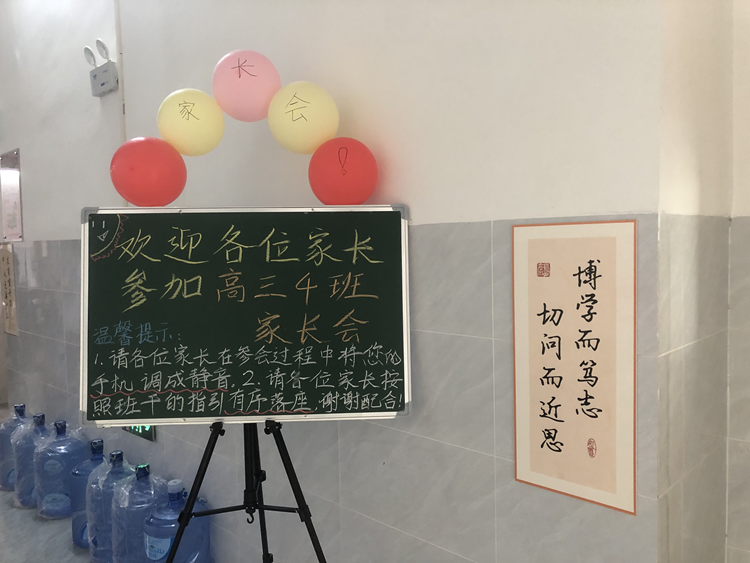 家长会!
欢迎各位家长
参加高三4班
家长会
温馨提示:
1.请各位家长在参会过程中将您的
手机调成静音.2.请各位家长按
照班干的指引有序落座,谢谢配合!
博学而笃志
切问而近思